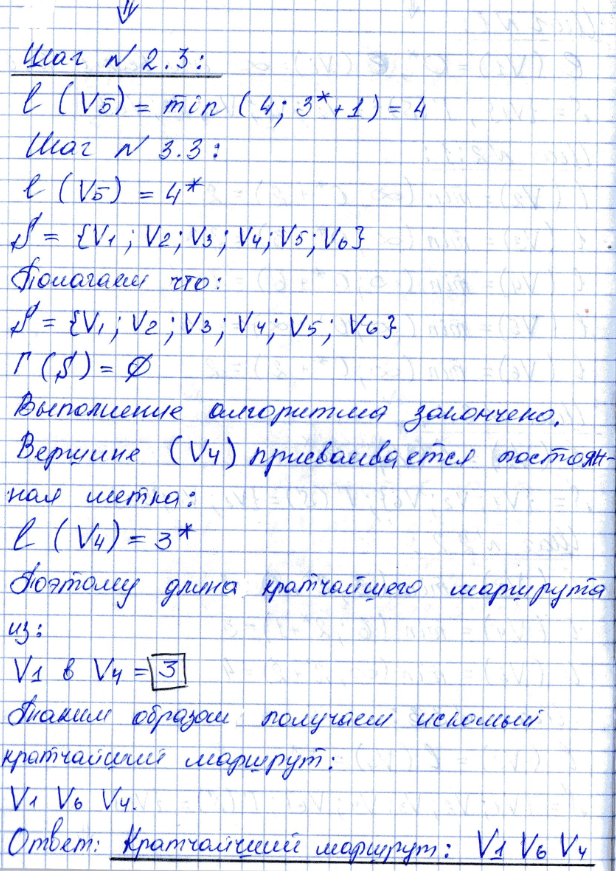 ⇓
Шаг N 2.3:
l (V5) = min (4; 3*+1) = 4
Шаг N 3.3:
l (V5) = 4*
S = {V1; V2; V3; V4; V5; V6}
Полагаем что:
S = {V1; V2; V3; V4; V5; V6}
Г(S) = ∅
Выполнение алгоритма закончено.
Вершине (V4) присваивается постоян-
ная метка:
l (V4) = 3*
Поэтому длина кратчайшего маршрута
из:
V1 в V4 = 3
Таким образом получаем искомый
кратчайший маршрут:
V1 V6 V4.
Ответ: Кратчайший маршрут: V1 V6 V4